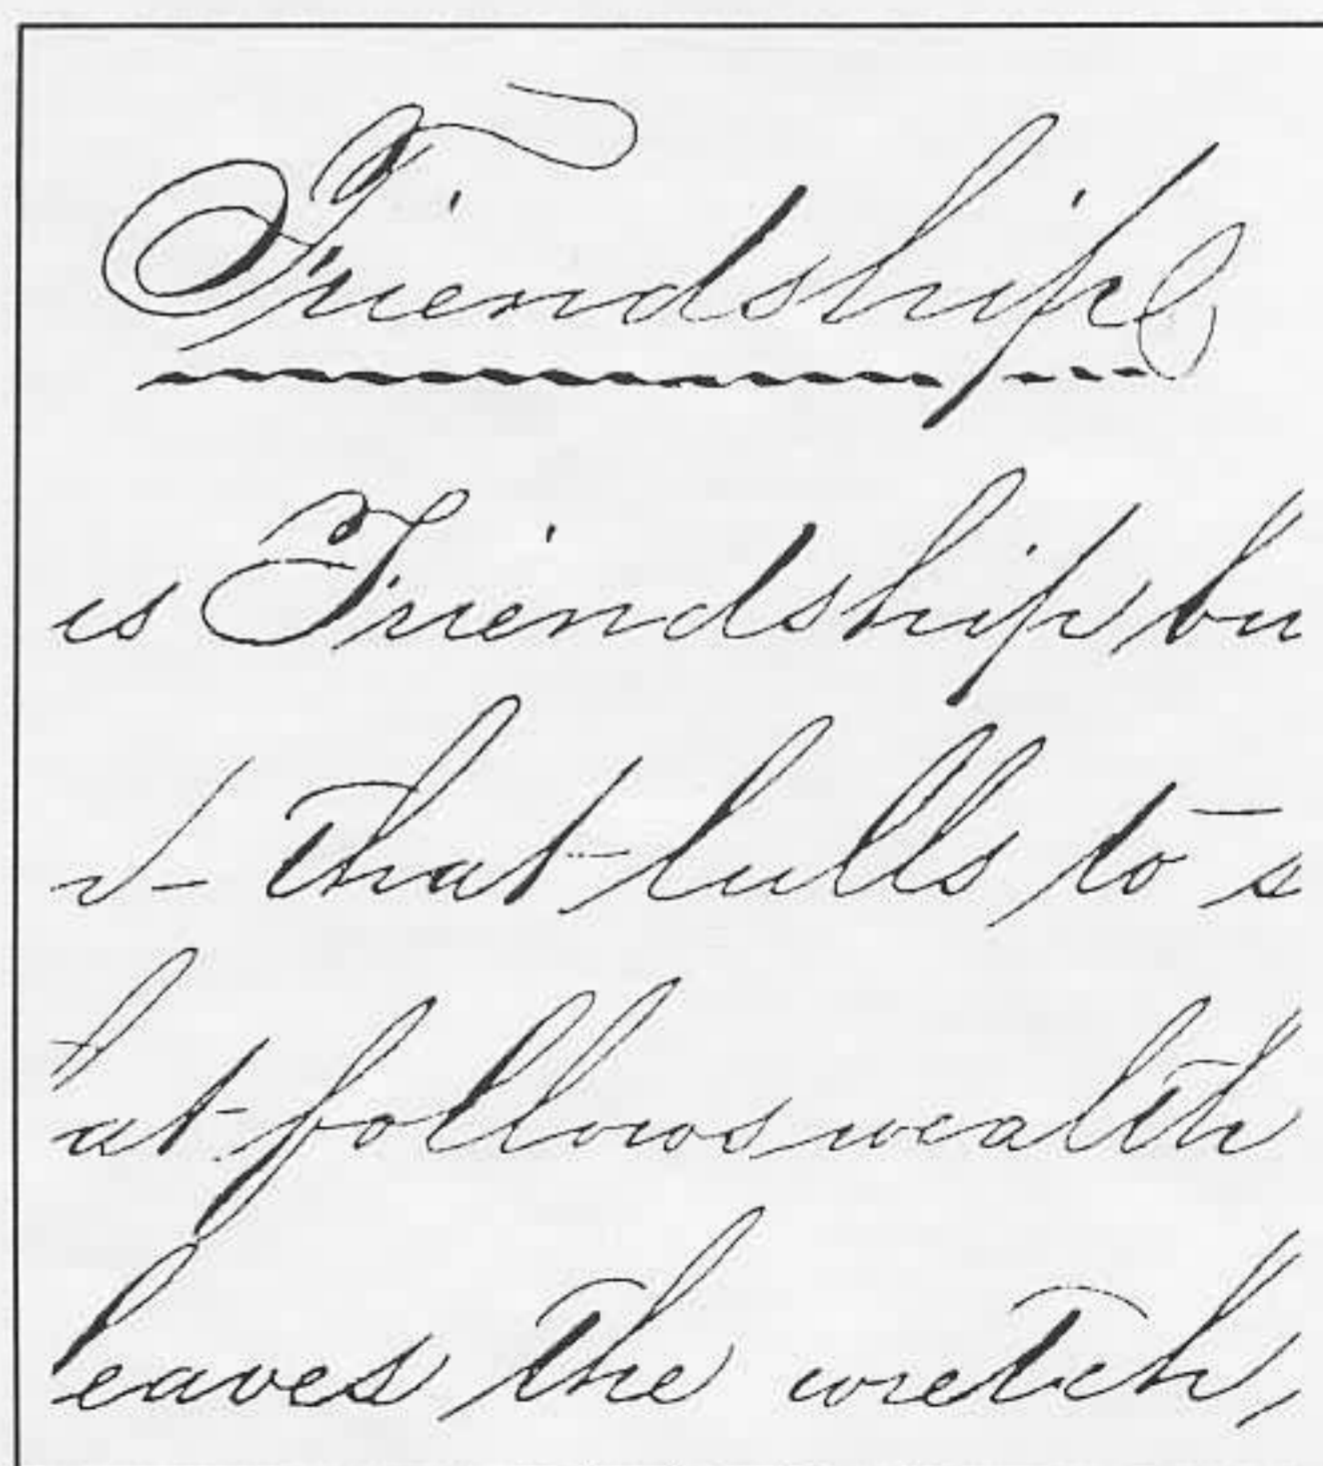 Friendship
is Friendship bu
that lulls to s
at follows wealth
leaves the wretch,